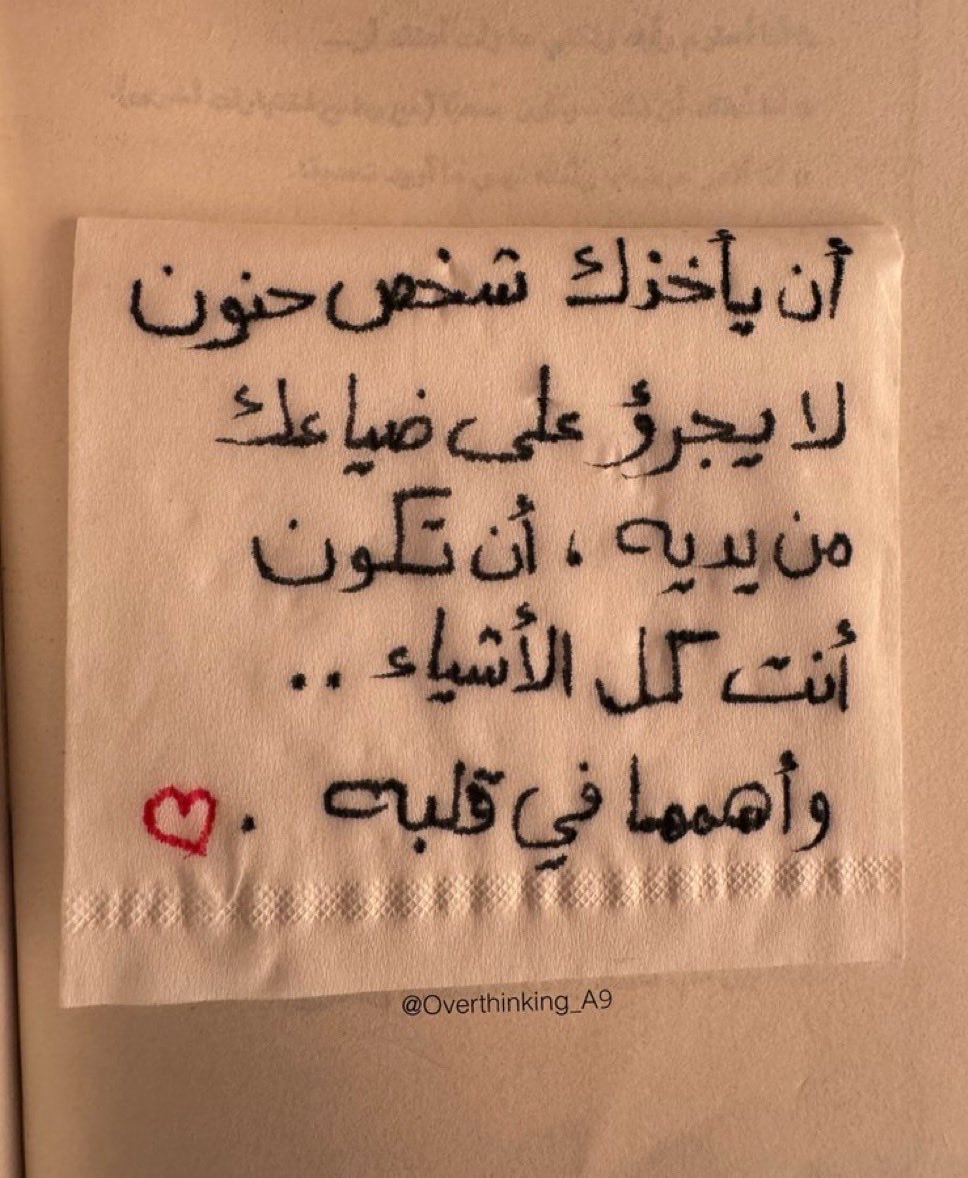 أن يأخذك شخص حنون
لا يجرؤ على ضياعك
من يديه ، أن تكون
أنت كل الأشياء ..
وأهمها في قلبه .
@Overthinking_A9